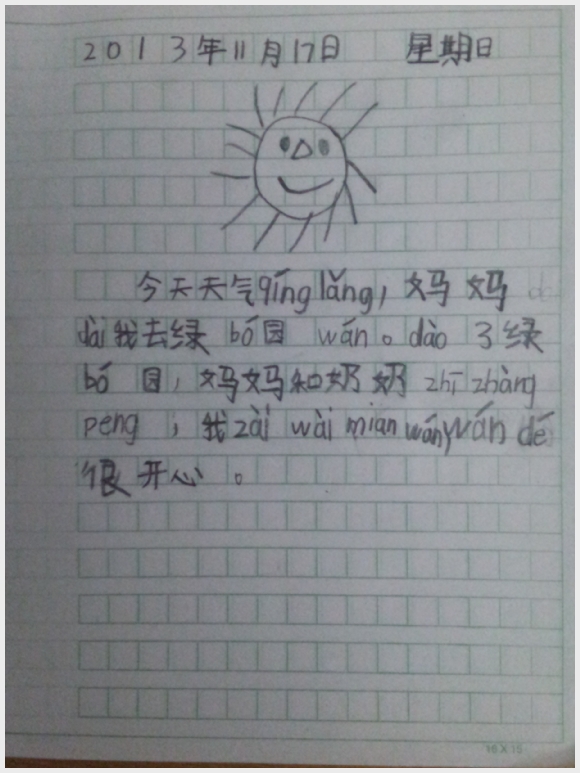 2013年11月17日 星期日
今天天气qínglǎng,妈妈
dài我去绿bó园 wán。dào 了绿
bó 园,妈妈和奶奶 zhī zhàng
peng ,我zài wài mian wán wán dé
很开心。
16X15